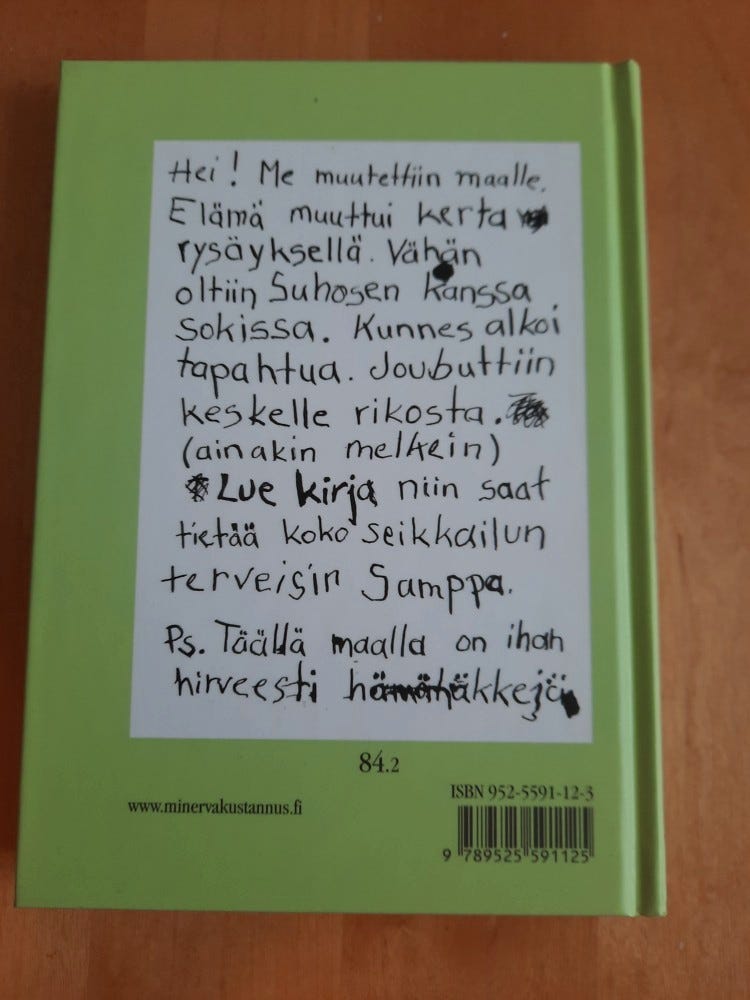 Hei! Me muutettiin maalle.
Elämä muuttui kerta
rysäyksellä. Vähän
oltiin Suhosen kanssa
sokissa. Kunnes alkoi
tapahtua. Joubuttiin
keskelle rikosta.
(ainakin melkein)
Lue kirja niin saat
tietää koko seikkailun
terveisin Samppa.
Ps. Täällä maalla on ihan
hirveesti hämähäkkejä
84.2
ISBN 952-5591-12-3
www.minervakustannus.fi
9 789525 591125